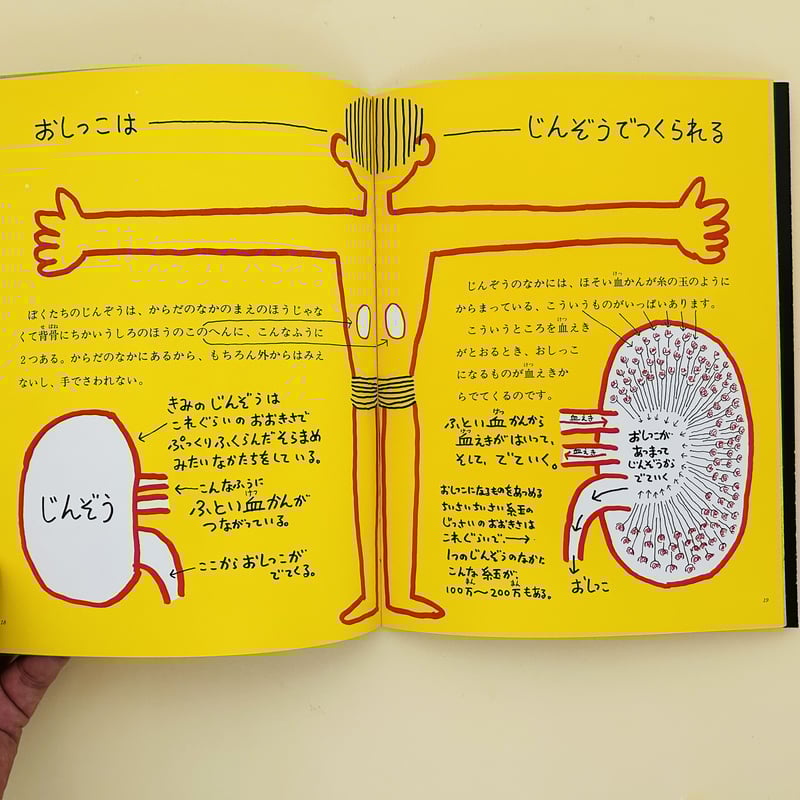 おしっこは
じんぞうでつくられる
ぼくたちのじんぞうは、からだのなかのまえのほうじゃな
くて背骨にちかいうしろのほうのこのへんに、こんなふうに
2つある。からだのなかにあるから、もちろん外からはみえ
ないし、手でさわれない。
きみのじんぞうは
これぐらいのおおきさで
ぷっくりふくらんだそらまめ
みたいなかたちをしている。
じんぞう
こんなふうに
ふとい血かんが
つながっている。
ここからおしっこが
でてくる。
18
じんぞうのなかには、ほそい血かんが糸の玉のように
からまっている、こういうものがいっぱいあります。
こういうところを血えき
がとおるとき、おしっこ
になるものが血えきか
らでてくるのです。
ふとい血かんから
血えきがはいって、
そして、でていく。
血えき
血えき
おしっこが
あつまって
じんぞうから
でていく
おしっこになるものをあつめる
ちいさいちいさい糸玉の
じっさいのおおきさは
これぐらいで、
1つのじんぞうのなかに
こんな糸玉が、
100万〜200万もある。
おしっこ
19